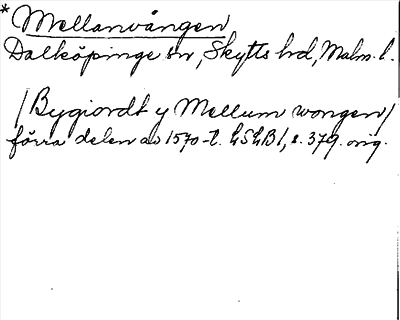 * Mellanvången
Dalköpinge sn, Skytts hd, Malm. l.
/Bygiordt y Mellum wongen/
förra delen av 1570-t. LSLB1, s. 379. orig.